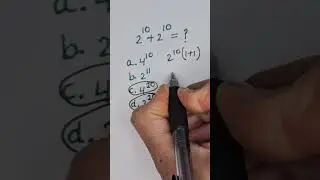 2^10 + 2^10 = ?
a. 4^10
2^10 (1+1)
b. 2^11
c. 4^20
d. 2^20